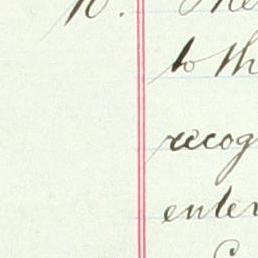 10. The
to th
recog
enter